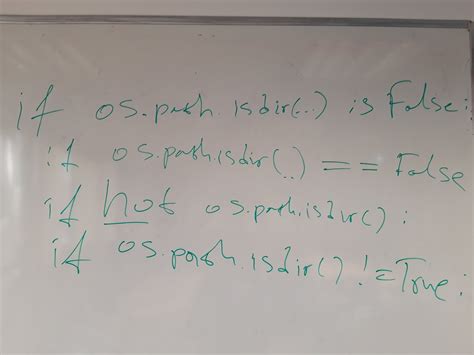 if os.path.isdir(..) is False:
if os.path.isdir(..) == False
if not os.path.isdir():
if os.path.isdir() != True: